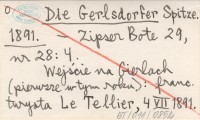 Die Gerlsdorfer Spitze.
1891. – Zipser Bote 29,
nr 28: 4.
Wejście na Gierlach
(pierwsze w tym roku): franc.
turysta Le Tellier, 4 VII 1891.